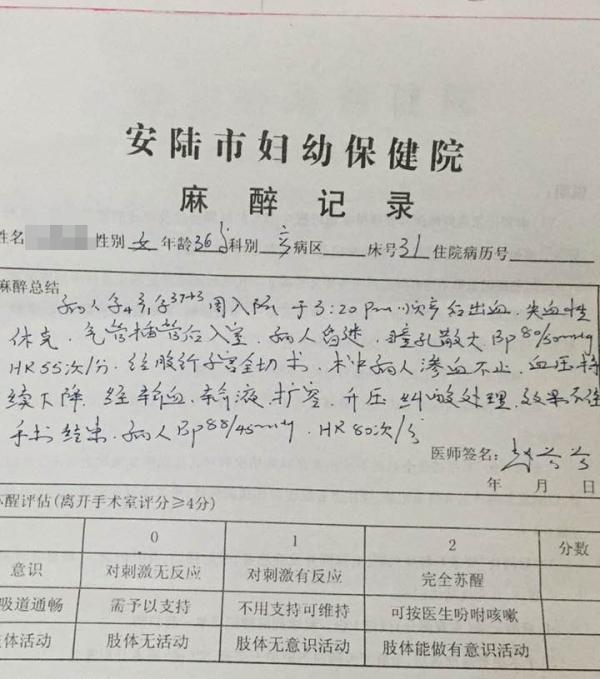 安陆市妇幼保健院
麻醉记录
姓名 性别 女 年龄 36岁 科别 产 病区 床号 31 住院病历号
麻醉总结
病人孕4产1孕37+3周入院 于3:20pm 顺产后出血. 失血性
休克. 气管插管后入室. 病人昏迷. 瞳孔散大. Bp 80/50mmHg
HR 55次/分. 经腹行子宫全切术. 术中病人渗血不止. 血压持
续下降. 经输血. 输液. 扩容. 升压 纠酸处理. 效果不佳
手术结束. 病人Bp 88/45mmHg. HR 80次/分
医师签名:
年 月 日
苏醒评估(离开手术室评分≥4分)
0 1 2 分数
意识 对刺激无反应 对刺激有反应 完全苏醒
吸道通畅 需予以支持 不用支持可维持 可按医生吩咐咳嗽
肢体活动 肢体无活动 肢体无意识活动 肢体能做有意识活动